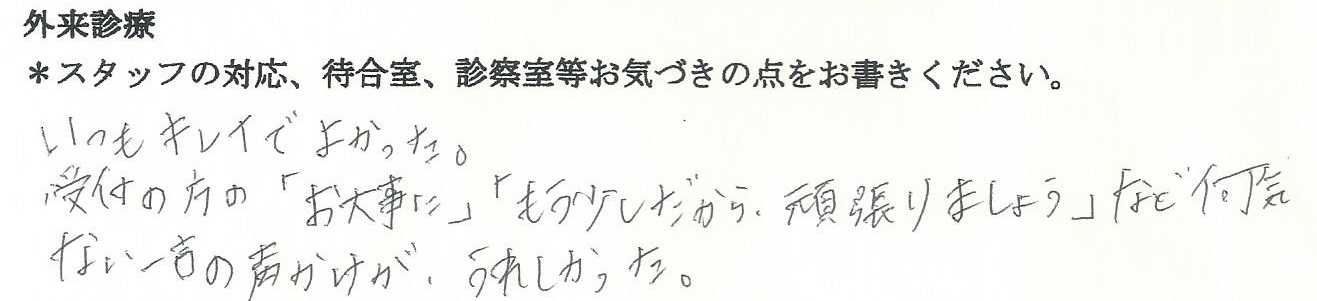 外来診療
＊スタッフの対応、待合室、診察室等お気づきの点をお書きください。
いつもキレイでよかった。
受付の方の「お大事に」「もう少しだから、頑張りましょう」など何気
ない一言の声かけが、うれしかった。